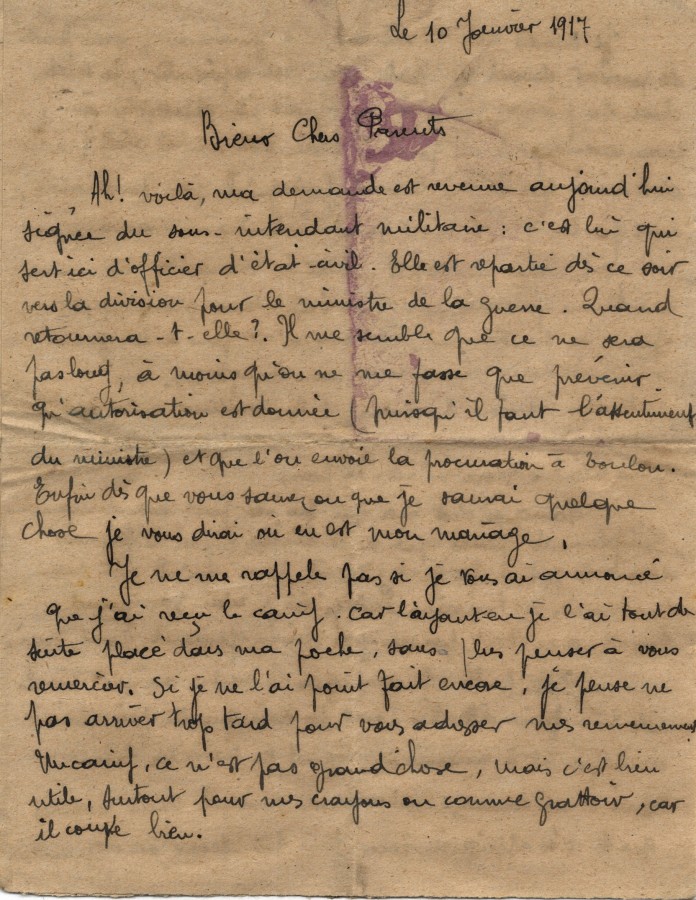 Le 10 Janvier 1917
Biens Chers Parents
Ah! voilà, ma demande est revenue aujourd'hui
signée du sous-intendant militaire : c'est lui qui
sert ici d'officier d'état-civil. Elle est repartie dès ce soir
vers la division pour le ministre de la guerre. Quand
retournera-t-elle?. Il me semble que ce ne sera
pas long, à moins qu'on ne me fasse que prévenir
qu'autorisation est donnée (puisqu'il faut l'assentiment
du ministre) et que l'on envoie la procuration à Toulon.
Enfin dès que vous saurez ou que je saurai quelque
chose je vous dirai où en est mon mariage.
Je ne me rappelle pas si je vous ai annoncé
que j'ai reçu le canif. Car l'ayant eu je l'ai tout de
suite placé dans ma poche, sans plus penser à vous
remercier. Si je ne l'ai point fait encore, je pense ne
pas arriver trop tard pour vous adresser mes remerciements
Un canif, ce n'est pas grand'chose, mais c'est bien
utile, surtout pour mes crayons ou comme grattoir, car
il coupe bien.